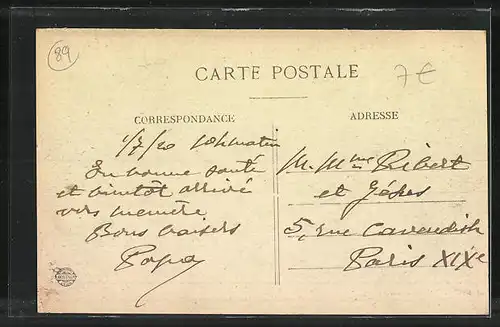 89
CARTE POSTALE
7€
CORRESPONDANCE
ADRESSE
1/7/20 10h matin
En bonne santé
et bientôt arrivé
vers memère
Bons baisers
Papa
M. Mme Ribert
et
5, rue Cavendish
Paris XIXe